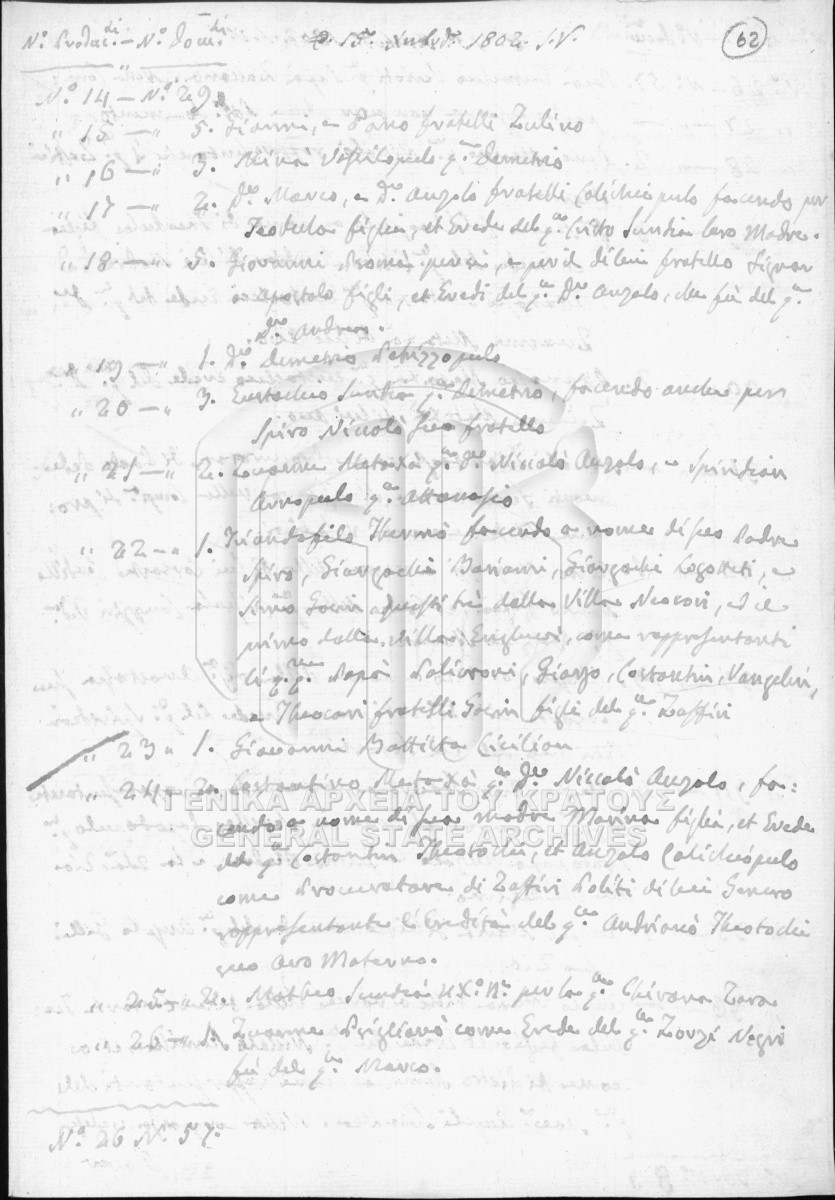 62
Nº Prodac.di - Nº Dom.di 15 1802. S.V.
Nº 14 - Nº 29.
" 15 - " 5. Gianni, e Pano fratelli Zulino
" 16 - " 3. Vassilopulo q.m Demetrio
" 17 - " 2. D.r Marco, e D.r Anzolo fratelli Calichiopulo facendo per
Teodula figlia, et Erede del q.m Cristo Sundia loro Madre.
" 18 - " 5. Giovanni per se, e per il di lui fratello Signor
Apostolo figli, et Eredi del q.m D.r Anzolo, che fù del q.m
D.r Andrea.
" 19 - " 1. D.r Demetrio Petrizzopulo
" 20 - " 3. Eustachio Sundia q.m Demetrio, facendo anche per
Spiro Niccolò suo fratello
" 21 - " 2. Zuanne Metaxà q.m D.r Niccolò Anzolo, e Spiridion
Avropulo q.m Attanasio
" 22 - " 1. Triandafilo Thermò facendo a nome di suo Padre
Spiro, Giorgachi Barianni, Giorgachi Logotteti, e
questi tre della Villa Neocori, ed il
primo della villa Engluvi, come rappresentanti
li q.m q.m Papà Policroni, Giorzo, Costantin, Vangelin,
e Theocari fratelli figli del q.m Zaffiri
" 23 " 1. Giovanni Battista Cicilian
" 24 - 2. Costantino Metaxà q.m D.r Niccolò Anzolo, fa=
cendo a nome di sua madre Marina figlia, et Erede
del q.m Costantin Theotochi, et Anzolo Calichiopulo
come Procuratore di Zaffiri Politi di lui Genero
rappresentante l'Eredità del q.m Andrianò Theotochi
suo Avo Materno.
" 25 - " 2. Matteo Sundia per la q.m Chirana Zara
" 26 - 1. Zuanne Psigliavò come Erede del q.m Zorzi Negri
fù del q.m Marco.
Nº 26 Nº 57.
ΓΕΝΙΚΑ ΑΡΧΕΙΑ ΤΟΥ ΚΡΑΤΟΥΣ
GENERAL STATE ARCHIVES